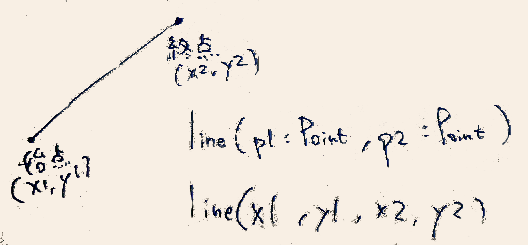 終点
(x2, y2)
始点
(x1, y1)
line(p1 : Point, p2 : Point)
line(x1, y1, x2, y2)